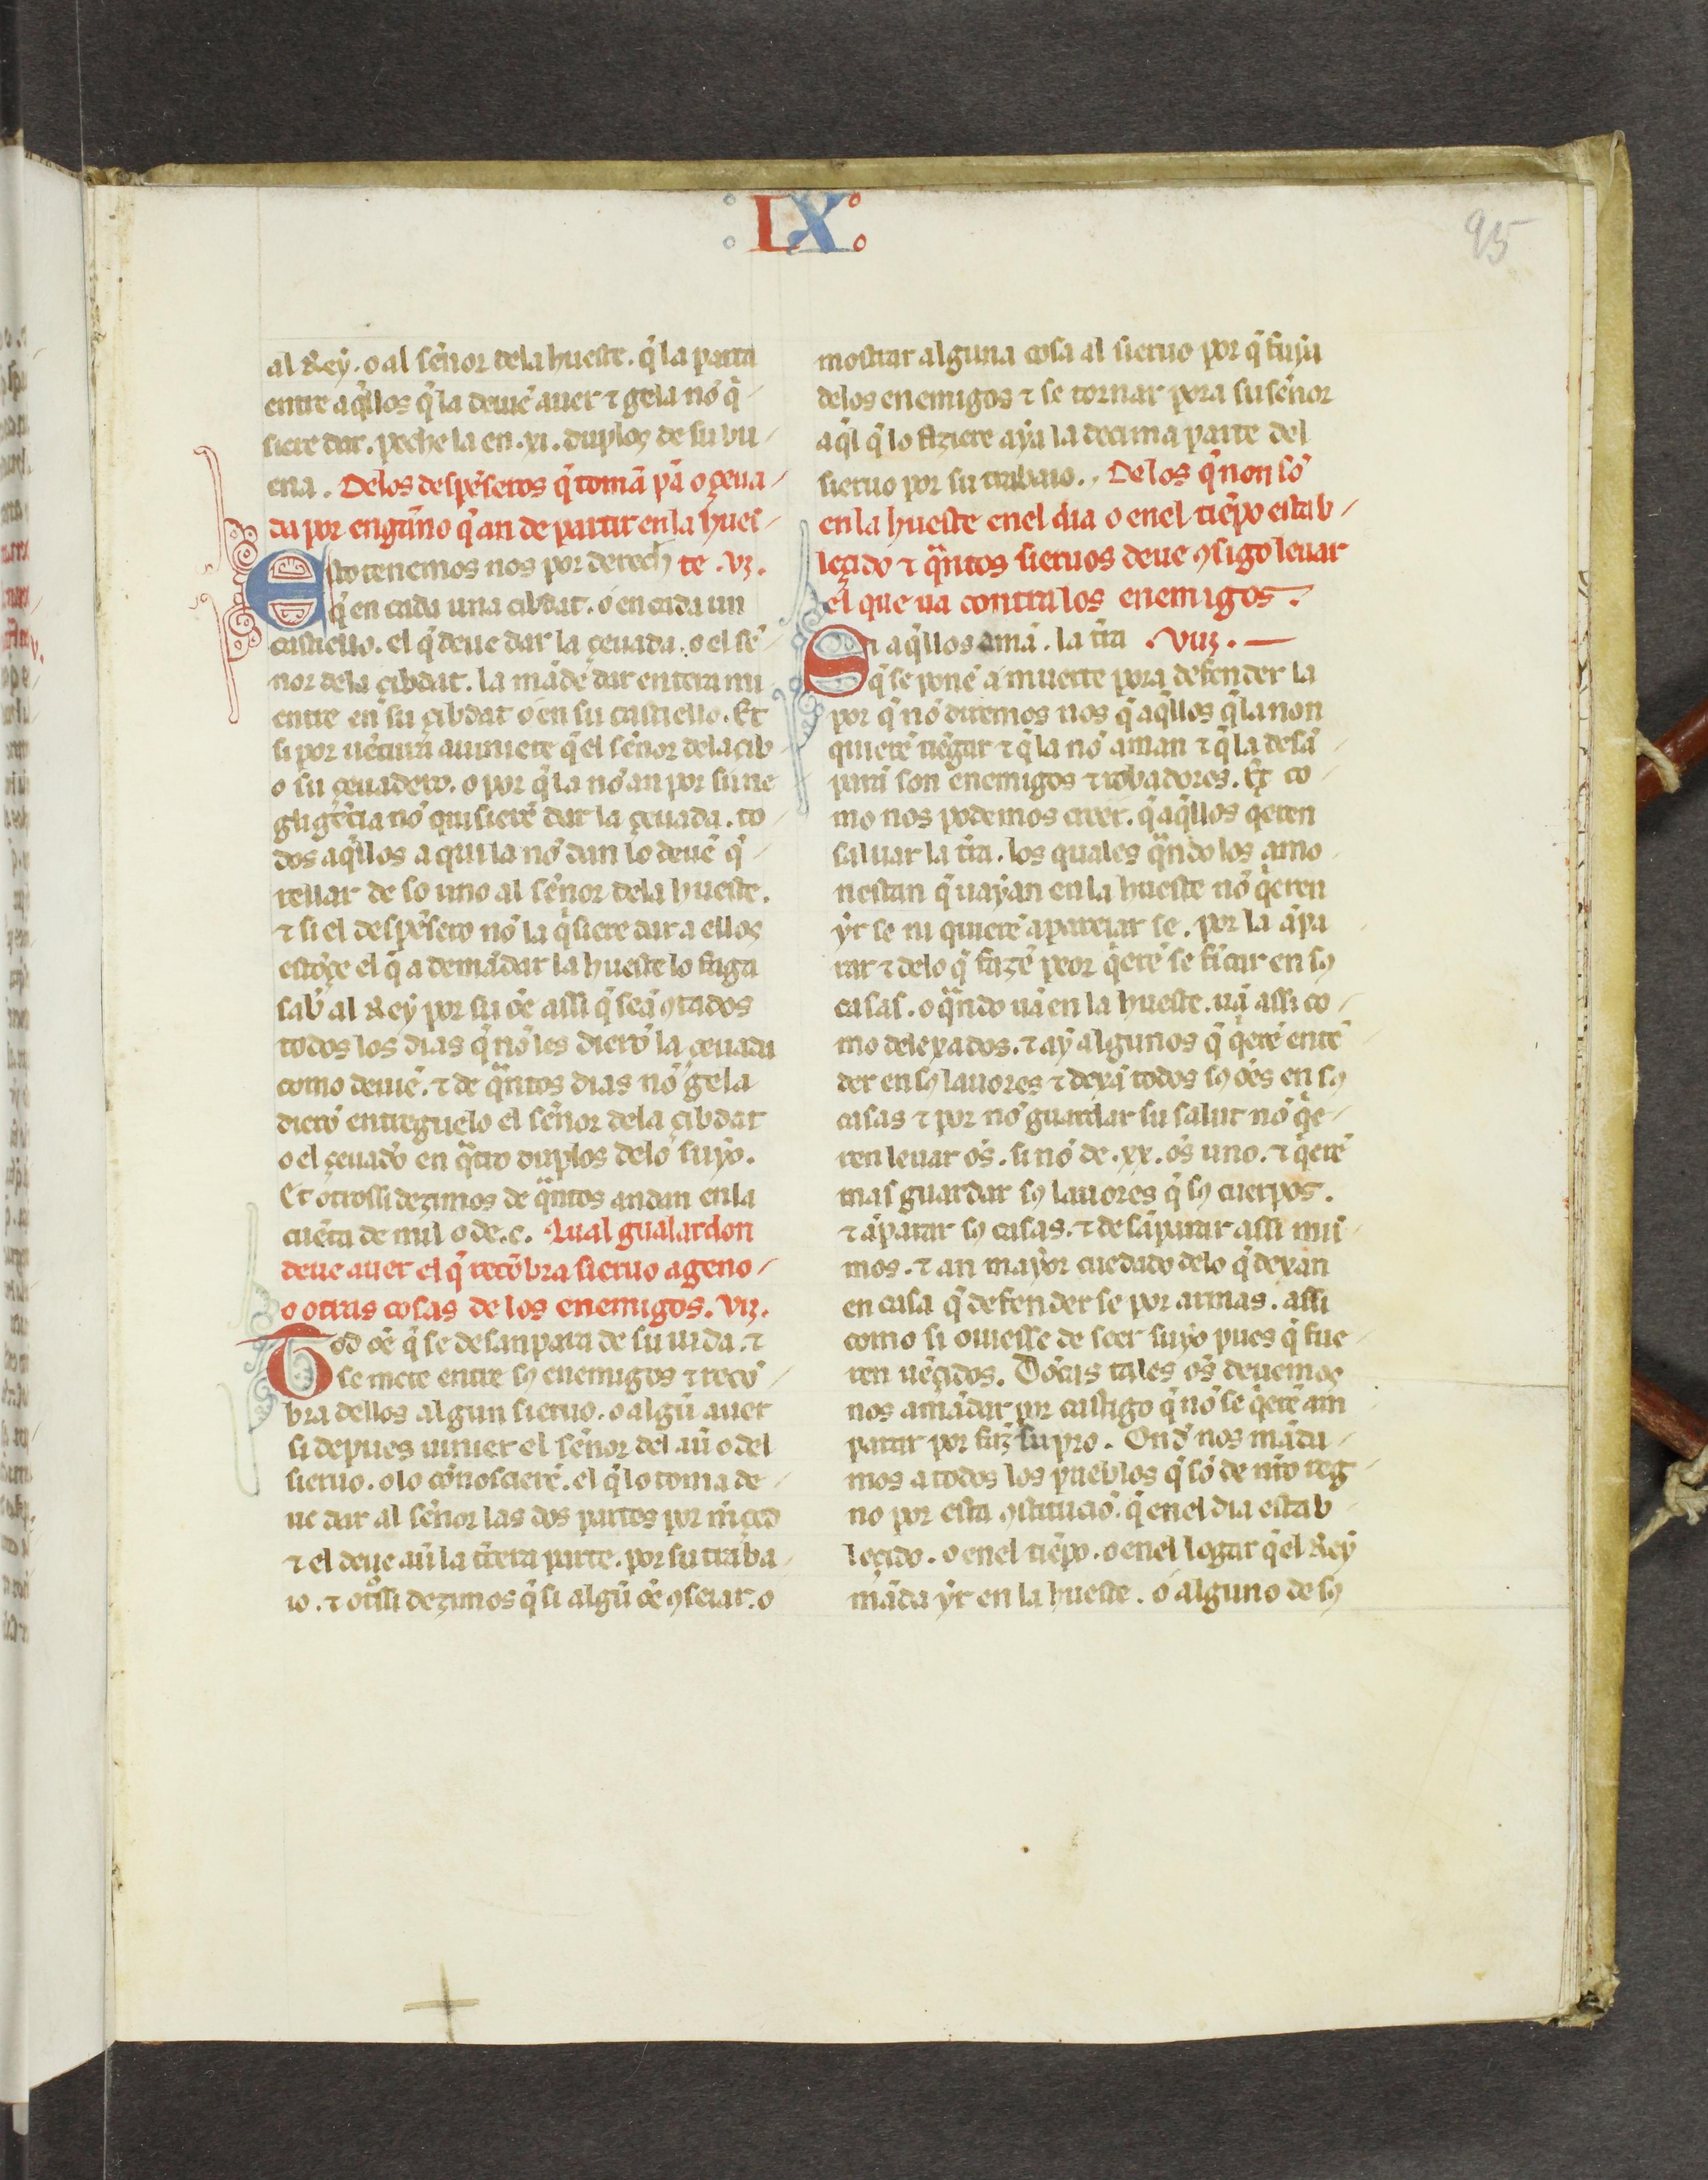 : LX :
95
al Rey. o al señor dela hueste. q̃ la parta
entre aq̃llos q̃ la deuẽ auer ⁊ gela nõ q̃
siere dar. peche la en .xi. duplos de su bu-
ena. Delos despẽseros q̃ tomã pã o çeua-
da por engãno q̃ an de partir en la hues-
Esto tenemos nos por derech te .vj.
q̃ en cada una cibdat. o en cada un
castiello. el q̃ deue dar la çeuada. o el se-
ñor dela çibdat. la mãdẽ dar entera mi
entre en su çibdat o en su castiello. Et
si por uẽtura auiniere q̃ el señor dela çib
o su çeuadero. o por q̃ la nõ an por su ne
gligẽcia nõ quisierẽ dar la çeuada. to-
dos aq̃llos a qui la nõ dan lo deuẽ q̃-
rellar de so uno al señor dela hueste.
⁊ si el despẽsero nõ la q̃siere dar a ellos
estõçe el q̃ a demãdar la hueste lo faga
sab̃ al Rey por su õe assi q̃ seã ꝯtados
todos los dias q̃ nõ les dierõ la çeuada
como deuẽ. ⁊ de q̃ntos dias nõ gela
dierõ entreguelo el señor dela çibdat
o el çeuadõ en q̃tro duplos delo suyo.
Et otrossi dezimos de q̃ntos andan en la
cuẽta de mil o de .c. Qual gualardon
deue auer el q̃ recõbra sieruo ageno-
o otras cosas de los enemigos. vij.
Tod õe q̃ se desanpara de su uida. ⁊
se mete entre sꝯ enemigos ⁊ recõ-
bra dellos algun sieruo. o algũ auer
si depues uinier el señor del aũ o del
sieruo. o lo cõnoscierẽ. el q̃ lo toma de-
ue dar al señor las dos partes por m̃çed
⁊ el deue aũ la t̃cera parte. por su traba-
io. ⁊ otssi dezimos q̃ si algũ õe ꝯseiar. o
mostrar alguna cosa al sieruo por q̃ fuya
delos enemigos ⁊ se tornar pora su señor
aq̃l q̃ lo fiziere aya la decima parte del
sieruo por su trabaio. Delos q̃ non sõ
en la hueste en el dia o en el tiẽpo estab-
leçido ⁊ q̃ntos sieruos deue ꝯsigo leuar
el que ua contra los enemigos.
Si aq̃llos amã. la t̃ra .viij.
q̃ se ponẽ a muerte pora defender la
por q̃ nõ diremos nos q̃ aq̃llos q̃ la non
quierẽ uẽgar ⁊ q̃ la nõ aman ⁊ q̃ la desã-
parã son enemigos ⁊ robadores. Et co-
mo nos podemos creer. q̃ aq̃llos q̃eren
saluar la t̃ra. los quales q̃ndo los amo-
nestan q̃ uayan en la hueste nõ q̃eren
yr se ni quierẽ apareiar se. por la ãpa
rar ⁊ delo q̃ fazẽ peor q̃erẽ se fĩcar en sꝯ
casas. o q̃ndo uã en la hueste. uã assi co-
mo delexados. ⁊ ay algunos q̃ q̃erẽ entẽ-
der en sꝯ lauores ⁊ dexã todos sꝯ ões en sꝯ
casas ⁊ por nõ guardar su salut nõ q̃e-
ren leuar õs. si nõ de .xx. õs uno. ⁊ q̃erẽ
mas guardar sꝯ lauores q̃ sꝯ cuerpos.
⁊ ãparar sꝯ casas. ⁊ desãparar assi mis-
mos. ⁊ an mayor cuedado delo q̃ dexan
en casa q̃ defender se por armas. assi
como si ouiesse de seer suyo pues q̃ fue-
ren uẽçidos. Dõcas tales õs deuemos
nos amãdar por castigo q̃ nõ se q̃erẽ am
parar por faz̃ su pro. Ond̃ nos mãda-
mos a todos los pueblos q̃ sõ de nr̃o reg-
no por esta ꝯstituciõ. q̃ en el dia estab-
leçido. o en el tiẽpo. o en el logar q̃ el Rey
mãda yr en la hueste. o alguno de sꝯ